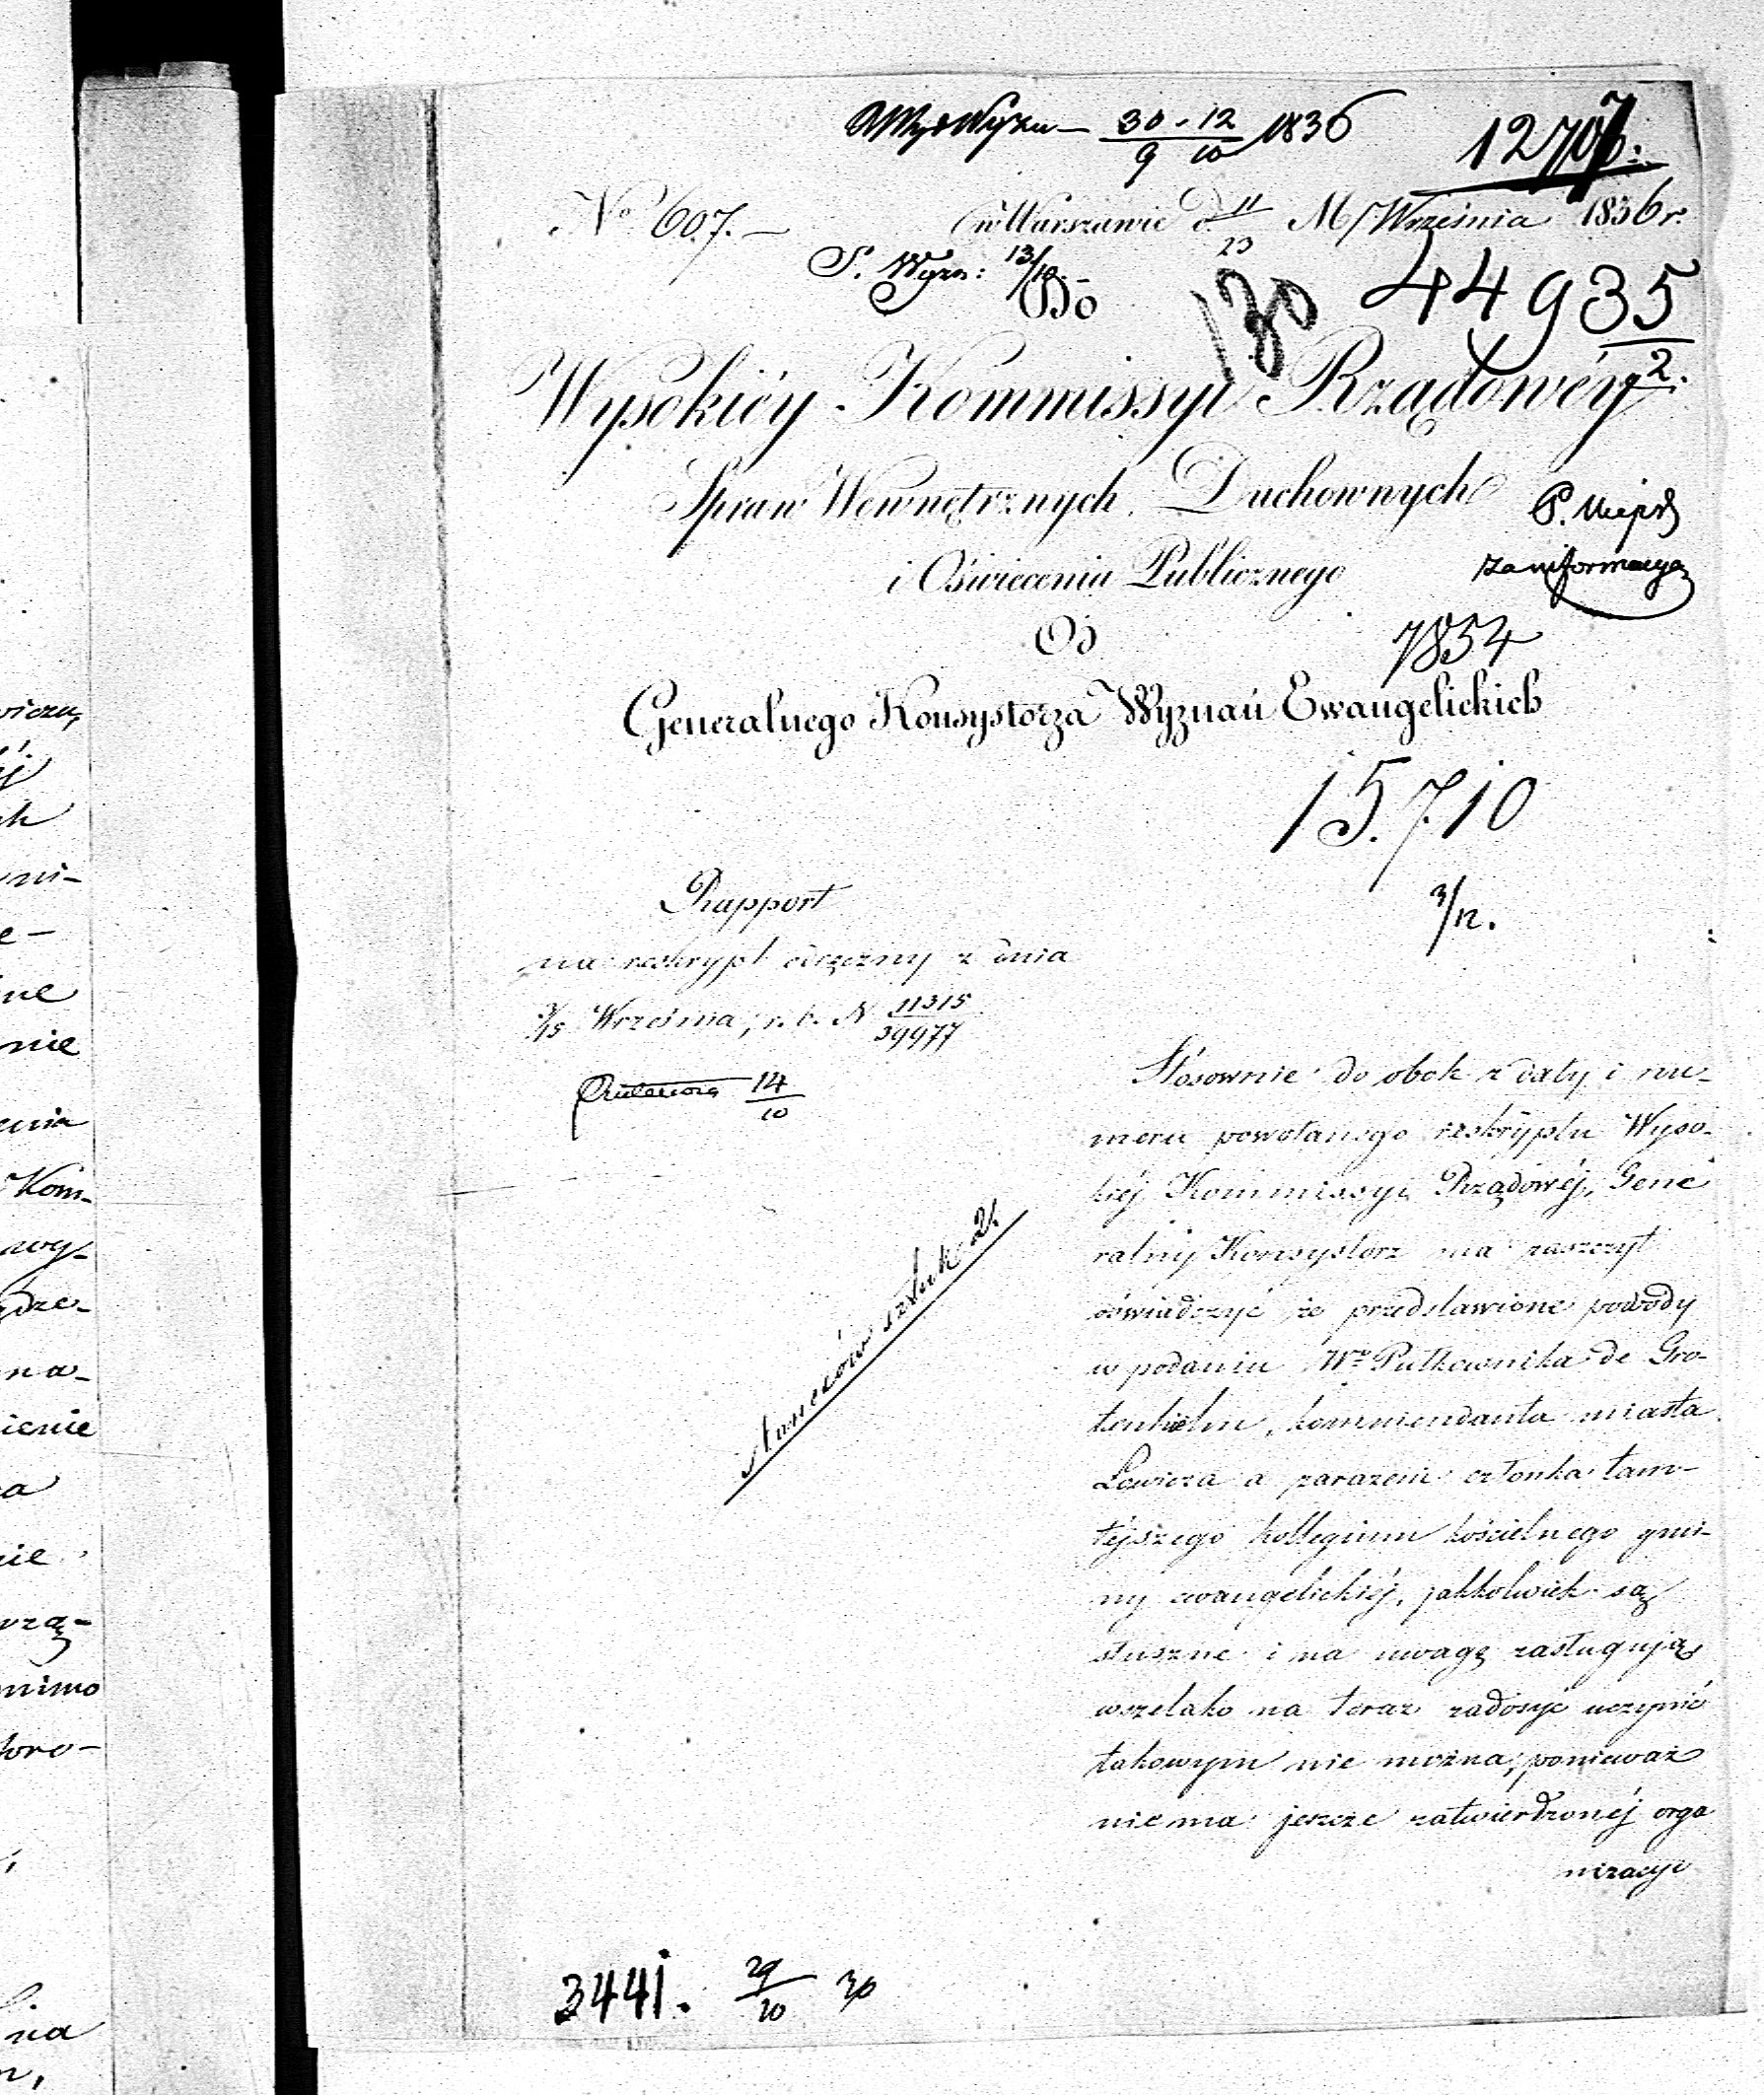 30 - 12 1836
9 10
12707.
No 607.
w Warszawie d. 11/23 M/ Września 1836 r.
S. Wyzn: 13/10
Do
130
44935
2.
Wysokiéy Kommissyi Rządowéy
Spraw Wewnętrznych, Duchownych
i Oświecenia Publicznego
za informacyą
Od
7854
Generalnego Konsystorza Wyznań Ewangelickich
15.710
3/12.
Rapport
na reskrypt odręczny z dnia
3/15 Września, r. b. N 11315/39977
14/10
Stósownie do obok z daty i nu-
meru powołanego reskryptu Wyso-
kiéj Kommissyi Rządowéj, Gene
ralny Konsystorz ma zaszczyt
oświadczyć że przedstawione powody
w podaniu Wo Pułkownika de Gro-
tenhielm, kommendanta miasta
Łowicza a zarazem członka tam-
tejszego kollegium kościelnego gmi-
ny ewangelickiéj, jakkolwiek są
słuszne i na uwagę zasługują
wszelako na teraz zadosyć uczynić
takowym nie można, ponieważ
nie ma jeszcze zatwierdzonéj orga
nizacyi
sztuk 2.
3441. 29/10 36
wiczu,
ij
ch
ni-
e-
ne
nie
enia
Kom-
wy-
dze-
na-
ienie
a
nie
rzą-
mimo
oro-
na